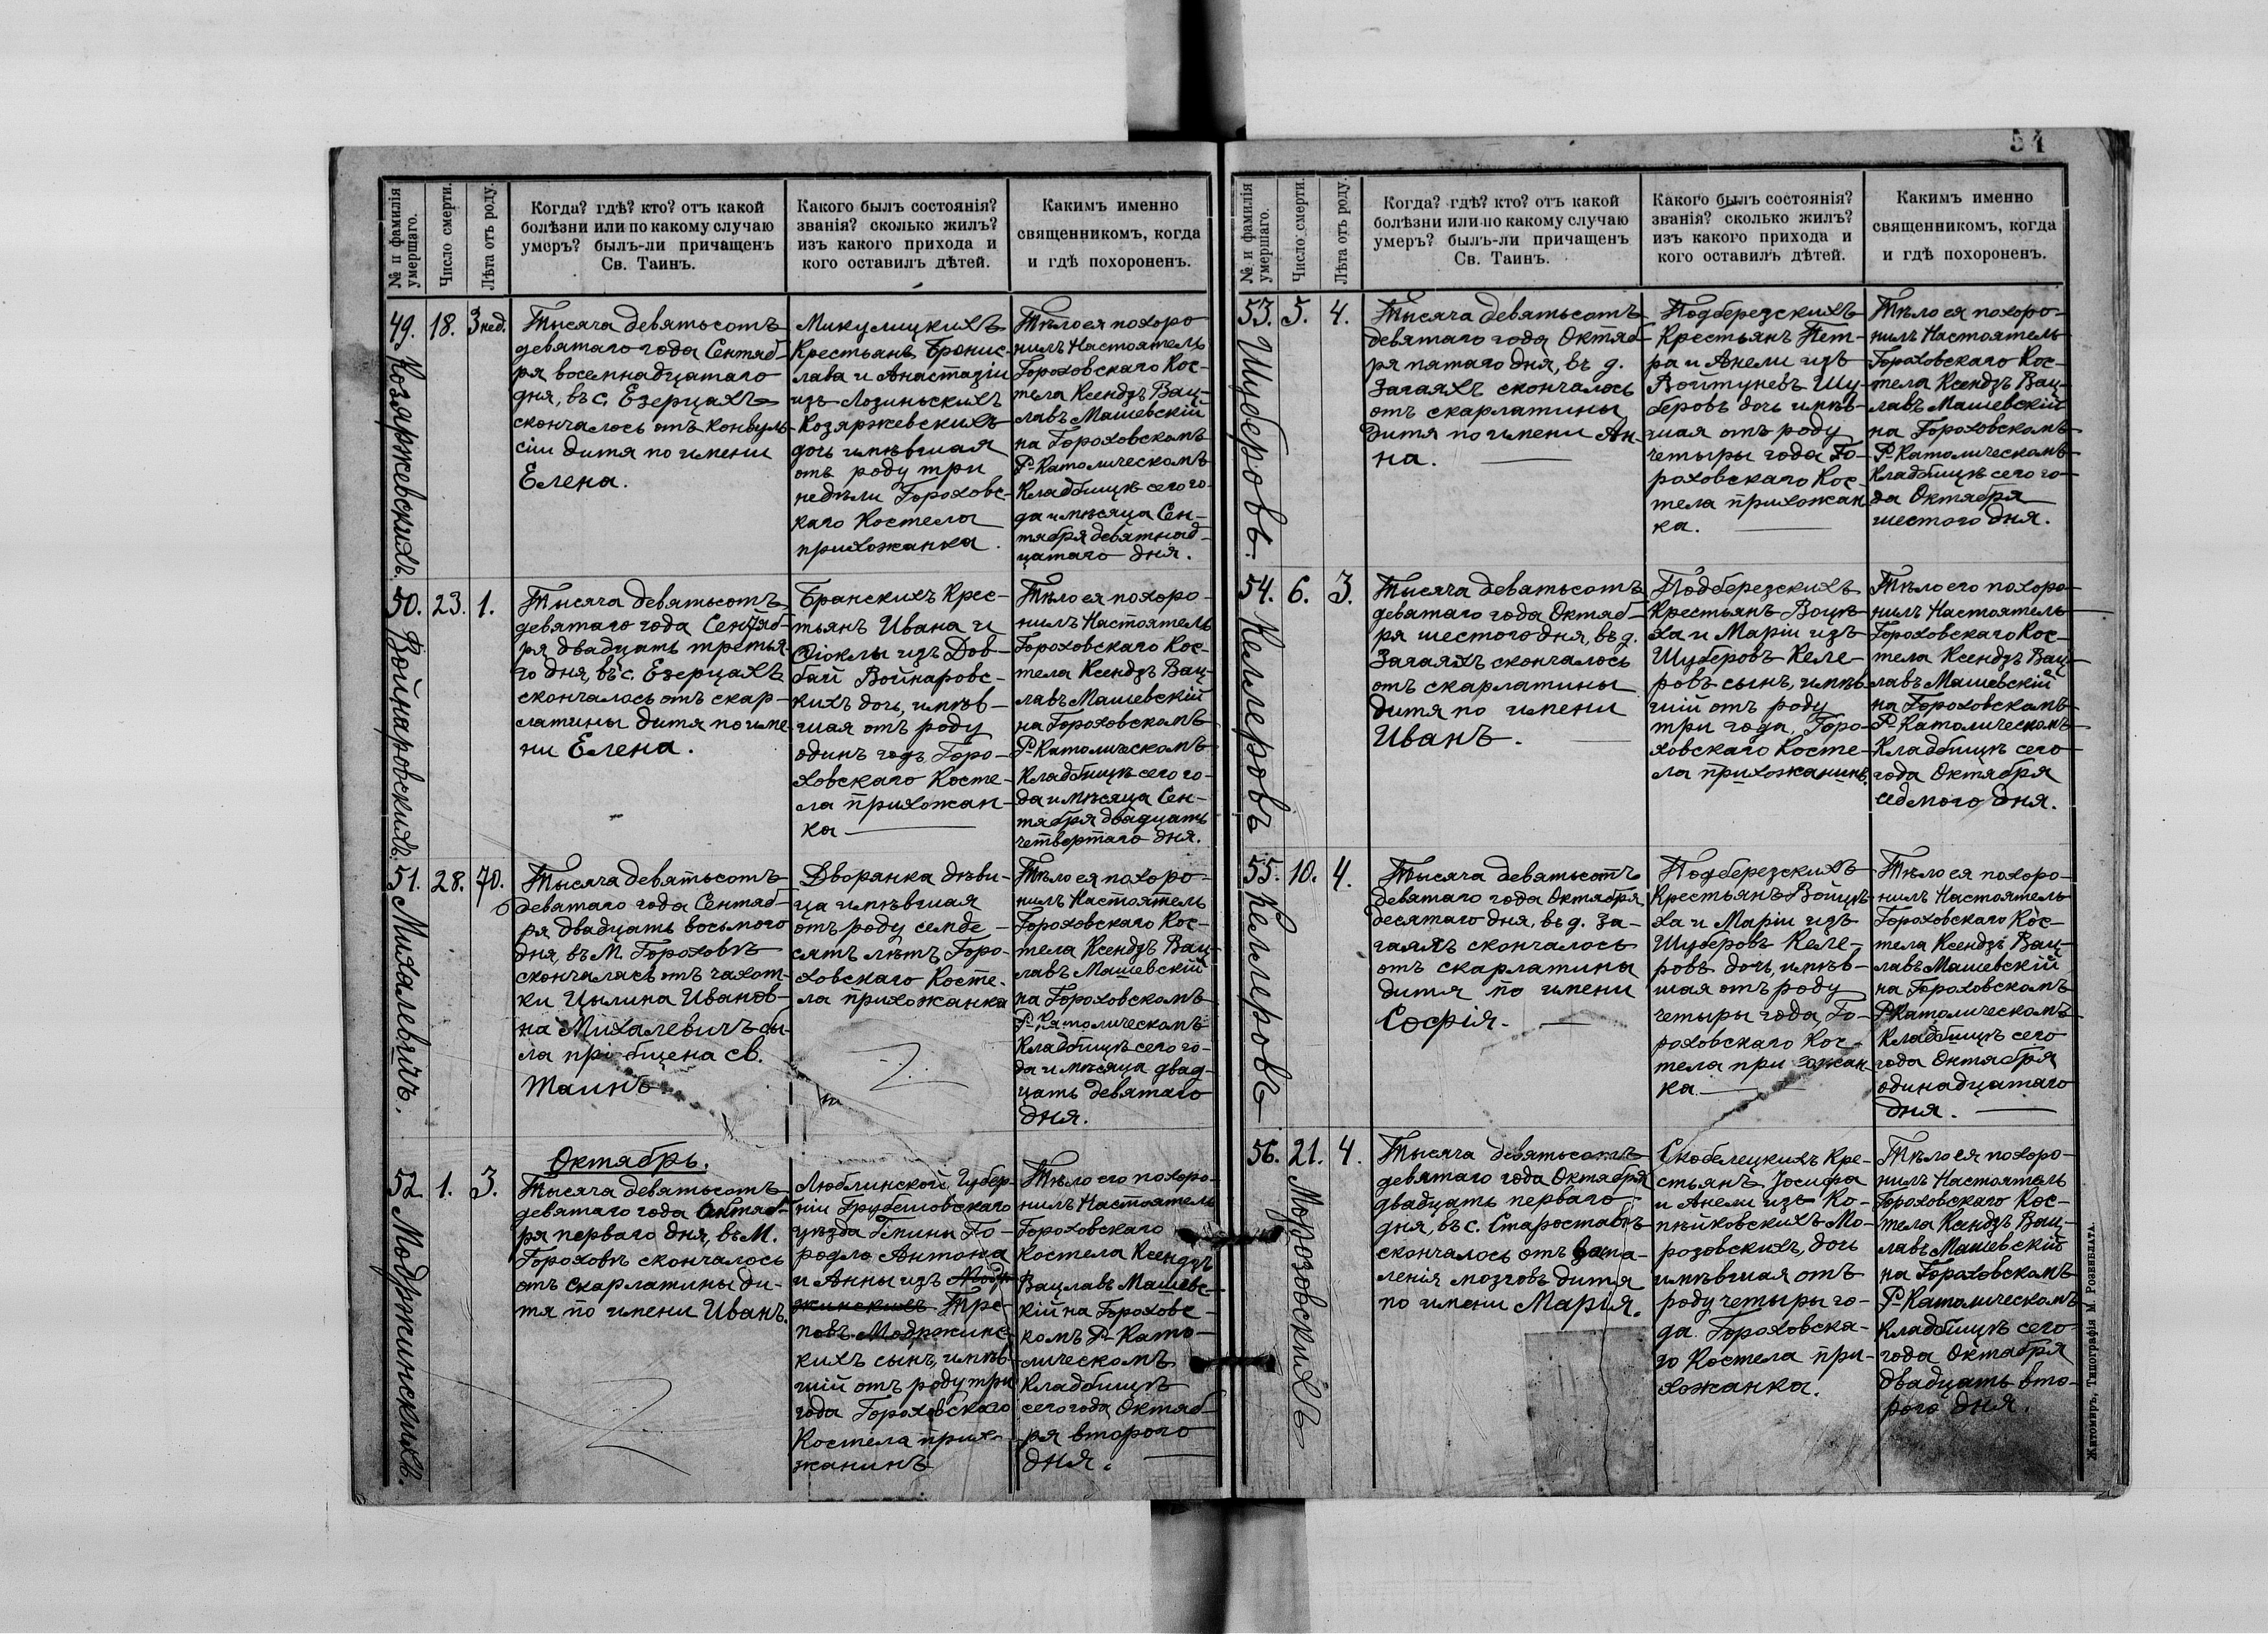 54
№ и фамилія умершаго.
Число смерти.
Лѣта отъ роду.
Когда? гдѣ? кто? отъ какой
болѣзни или по какому случаю
умеръ? былъ-ли причащенъ
Св. Таинъ.
Какого былъ состоянія?
званія? сколько жилъ?
изъ какого прихода и
кого оставилъ дѣтей.
Каким именно
священникомъ, когда
и гдѣ похороненъ.
49. Козяржевскихъ.
18.
3 нед.
Тысяча девятьсотъ
девятаго года Сентяб-
ря восемнадцатаго
дня, въ с. Езерцахъ
скончалось отъ конвуль-
сіи дитя по имени
Елена.
Микулицкихъ
Крестьянъ Бронис-
лава и Анастазіи
изъ Лозиньскихъ
Козяржевскихъ
дочь имѣвшая
отъ роду три
недѣли Гороховс-
каго Костела
прихожанка.
Тѣло ея похоро-
нилъ Настоятель
Гороховскаго Кос-
тела Ксендзъ Вац-
лавъ Машевскій
на Гороховскомъ
Р-Католическомъ
Кладбищѣ сего го-
да и мѣсяца Сен-
тября девятнад-
цатаго дня.
50. Войнаровскихъ.
23.
1.
Тысяча девятьсотъ
девятаго года Сентяб-
ря двадцать третья-
го дня, въ с. Езерцахъ
скончалось отъ скар-
латины дитя по име
ни Елена.
Бранскихъ Крес-
тьянъ Ивана и
Ѳіоклы изъ Дов-
бай Войнаровс-
кихъ дочь, имѣв-
шая отъ роду
одинъ годъ Горо-
ховскаго Косте-
ла прихожан-
ка
Тѣло ея похоро-
нилъ Настоятель
Гороховскаго Кос-
тела Ксендзъ Вац-
лавъ Машевскій
на Гороховскомъ
Р-Католическомъ
Кладбищѣ сего го-
да и мѣсяца Сен-
тября двадцать
четвертаго дня.
51. Михалевичъ.
28.
70.
Тысяча девятьсотъ
девятаго года Сентяб-
ря двадцать восьмого
дня, въ М. Гороховѣ
скончалась отъ чахот-
ки Цылина Иванов-
на Михалевичъ бы-
ла пріобщена св.
Таинъ
Дворанка дѣви-
ца имѣвшая
отъ роду семде-
сятъ лѣтъ Горо-
ховскаго Косте-
ла прихожанка
Тѣло ея похоро-
нилъ Настоятель
Гороховскаго Кос-
тела Ксендзъ Вац-
лавъ Машевскій
на Гороховскомъ
Р-Католическомъ
Кладбищѣ сего го-
да и мѣсяца двад-
цать девятаго
дня.
Октябрь.
52 Модржинскихъ.
1.
3.
Тысяча девятьсотъ
девятаго года Октяб-
ря перваго дня, въ М.
Гороховѣ скончалось
отъ скарлатины ди-
тя по имени Иванъ.
Люблинской Губер-
ніи Грубешовскаго
уѣзда Гмины Го-
родло Антона
и Анны изъ Модр
жинскихъ Трё-
повъ Модржинс-
кихъ сынъ, имѣв-
шій отъ роду три
года Гороховскаго
Костела прихо-
жанинъ
Тѣло его похоро-
нилъ Настоятель
Гороховскаго
Костела Ксендзъ
Вацлавъ Машевс-
кій на Гороховс-
комъ Р-Като-
лическомъ
Кладбищѣ
сего года Октяб-
ря второго
дня.
№ и фамилія умершаго.
Число смерти.
Лѣта отъ роду.
Когда? гдѣ? кто? отъ какой
болѣзни или по какому случаю
умеръ? былъ-ли причащенъ
Св. Таинъ.
Какого былъ состоянія?
званія? сколько жилъ?
изъ какого прихода и
кого оставилъ дѣтей.
Каким именно
священникомъ, когда
и гдѣ похороненъ.
53. Шуберовъ.
5.
4.
Тысяча девятьсотъ
девятаго года Октяб-
ря пятаго дня, въ д.
Загаяхъ скончалось
отъ скарлатины
дитя по имени Ан-
на.
Подберезскихъ
Крестьянъ Пет-
ра и Анели изъ
Войтуневъ Шу-
беровъ дочь имѣв-
шая отъ роду
четыры года Го-
роховскаго Кос-
тела прихожан
ка.
Тѣло ея похоро-
нилъ Настоятель
Гороховскаго Кос-
тела Ксендзъ Вац-
лавъ Машевскій
на Гороховскомъ
Р-Католическомъ
Кладбищѣ сего го-
да Октября
шестого дня.
54. Келлеровъ
6.
3.
Тысяча деватьсотъ
девятаго года Октяб-
ря шестого дня, въ д.
Загаяхъ скончалось
отъ скарлатины
дитя по имени
Иванъ.
Подберезскихъ
Крестьянъ Войцѣ-
ха и Маріи изъ
Шуберовъ Келе-
ровъ сынъ, имѣв-
шій отъ роду
три года, Горо-
ховскаго Косте-
ла прихожанинъ.
Тѣло его похоро-
нилъ Настоятель
Гороховскаго Кос-
тела Ксендзъ Вац-
лавъ Машевскій
на Гороховскомъ
Р-Католическомъ
Кладбищѣ сего
года Октября
седмого дня.
55. Келлеровъ
10.
4.
Тысяча девятьсотъ
девятаго года Октября
десятаго дня, въ д. За-
гаяхъ скончалось
отъ скарлатины
дитя по имени
Софія.
Подберезскихъ
Крестьянъ Войцѣ-
ха и Маріи изъ
Шуберовъ Келе-
ровъ дочь, имѣв-
шая отъ роду
четыры года, Го-
роховскаго Кос-
тела прихожан
ка
Тѣло ея похоро-
нилъ Настоятель
Гороховскаго Кос-
тела Ксендзъ Вац-
лавъ Машевскій
на Гороховскомъ
Р-Католическомъ
Кладбищѣ сего
года Октября
одинадцатаго
дня.
56. Морозовскихъ
21.
4.
Тысяча девятьсотъ
девятаго года Октября
двадцать перваго
дня, въ с. Староставѣ
скончалось отъ запа-
ленія мозговъ дитя
по имени Марія.
Скобелецкихъ Кре-
стьянъ Іосифа
и Анели изъ Ко-
пѣйковскихъ Мо-
розовскихъ, дочь
имѣвшая отъ
роду четыры го-
да. Гороховска-
го Костела при-
хожанка.
Тѣло ея похоро-
нилъ Настоятель
Гороховскаго Кос-
тела Ксендзъ Вац-
лавъ Машевскій
на Гороховскомъ
Р-Католическомъ
Кладбищѣ сего
года Октября
двадцать вто-
рого дня.
Житомиръ, Типографія М. Розенблата.